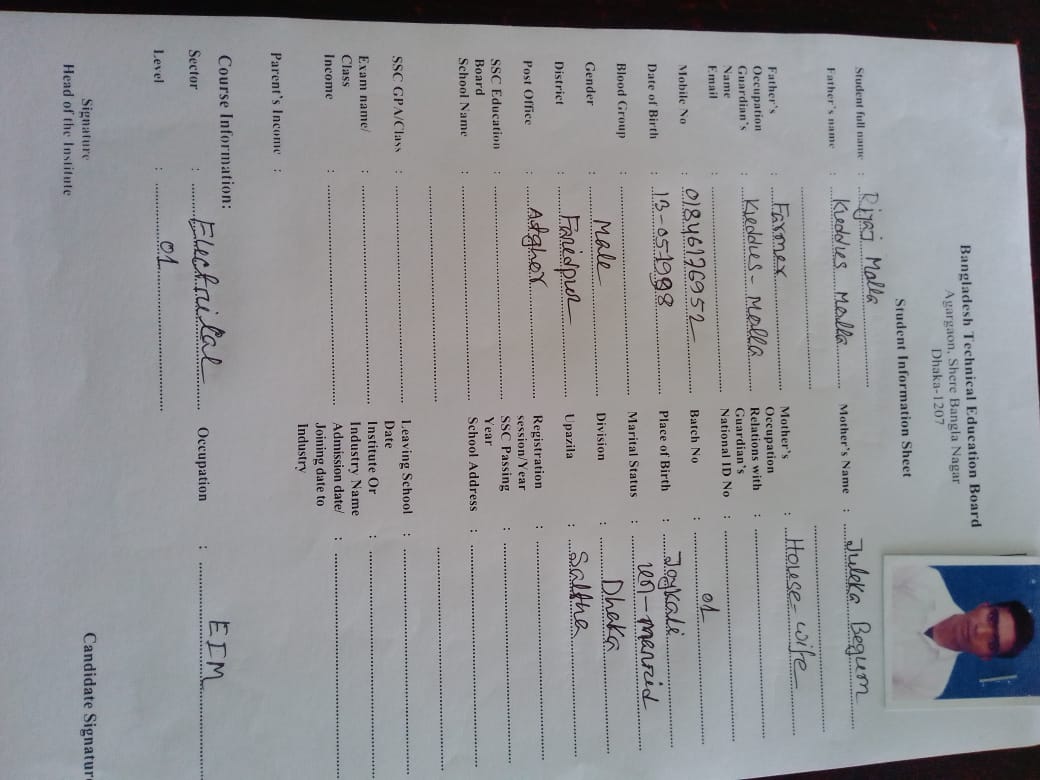 Bangladesh Technical Education Board
Agargaon, Shere Bangla Nagar
Dhaka-1207
Student Information Sheet
Student full name : Rijaj Molla Mother's Name : Juleka Begum
Father's name : Kueddies Molla
Father's Occupation : Farmer Mother's Occupation : House-wife
Guardian's Name : Kueddies-Molla Relations with Guardian's :
Email : National ID No :
Mobile No : 01846126952 Batch No : 01
Date of Birth : 13-05-1998 Place of Birth : Joykali
Blood Group : Marital Status : un-married
Gender : Male Division : Dhaka
District : Faridpur Upazila : Saltha
Post Office : Adghor Registration session/Year :
SSC Education Board : SSC Passing Year :
School Name : School Address :
SSC GPA/Class : Leaving School Date :
Exam name/ Class : Institute Or Industry Name :
Income : Admission date/ Joining date to Industry :
Parent's Income :
Course Information:
Sector : Electrical Occupation : EIM
Level : 01
Signature
Head of the Institute Candidate Signature